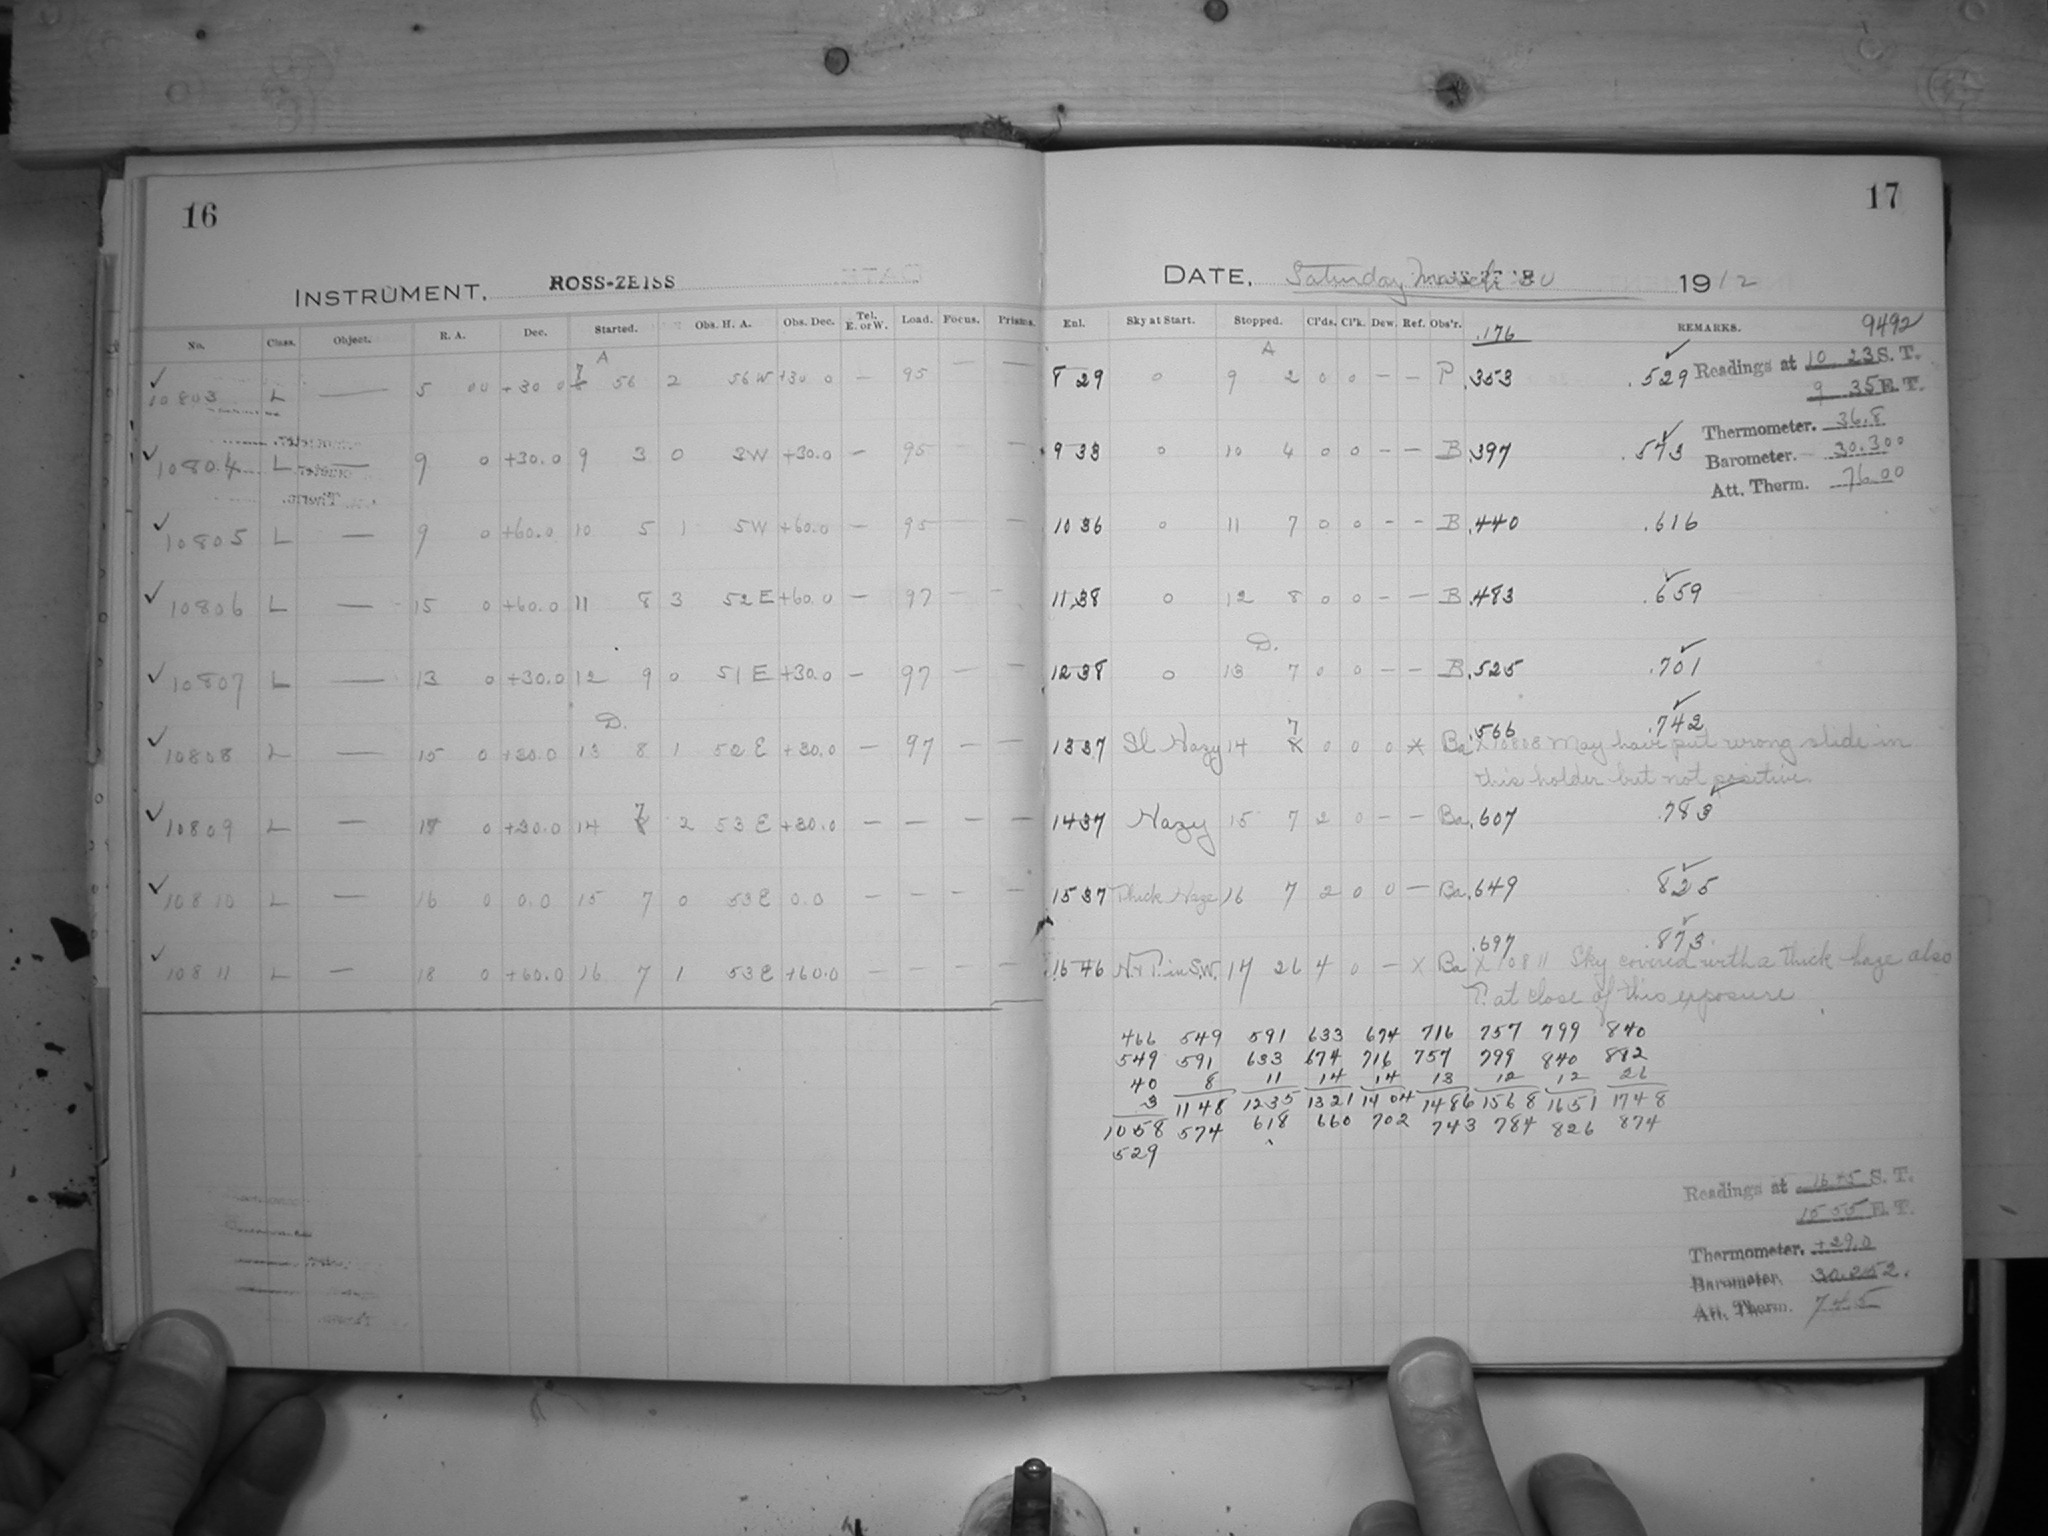 16
INSTRUMENT, ROSS-ZEISS
No. Class. Object. R. A. Dec. Started. Obs. H. A. Obs. Dec. Tel. E. or W. Load. Focus. Prisms.
A
10803 L — 5 00 +30 0 7 56 2 56 W +30 0 — 95 — —
10804 L — 9 0 +30.0 9 3 0 3W +30.0 — 95 — —
10805 L — 9 0 +60.0 10 5 1 5W +60.0 — 95 — —
10806 L — 15 0 +60.0 11 8 3 52 E +60.0 — 97 — —
10807 L — 13 0 +30.0 12 9 0 51 E +30.0 — 97 — —
D.
10808 L — 15 0 +30.0 13 8 1 52 E +30.0 — 97 — —
10809 L — 17 0 +30.0 14 7 2 53 E +30.0 — — — —
10810 L — 16 0 0.0 15 7 0 53 E 0.0 — — — —
10811 L — 18 0 +60.0 16 7 1 53 E +60.0 — — — —
17
DATE, Saturday March 30 1912
Enl. Sky at Start. Stopped. Cl'ds. Cl'k. Dew. Ref. Obs'r. .176 REMARKS. 9492
A
8 29 0 9 2 0 0 — — P .353 .529 Readings at 10 23 S. T.
9 35 E. T.
Thermometer. 36.8
9 33 0 10 4 0 0 — — B .397 .573 Barometer. 30.300
Att. Therm. 76.00
10 36 0 11 7 0 0 — — B .440 .616
11 38 0 12 8 0 0 — — B .483 .659
D.
12 38 0 13 7 0 0 — — B .525 .701
.566 .742
13 37 Sl Hazy 14 7 0 0 0 * Ba X 10808 May have put wrong slide in
this holder but not positive
14 37 Hazy 15 7 2 0 — — Ba .607 .783
15 37 Thick Haze 16 7 2 0 0 — Ba .649 825
.697 .873
16 46 H & T. in S.W. 17 26 4 0 — X Ba X 10811 Sky covered with a thick haze also
T. at close of this exposure
466 549 591 633 674 716 757 799 840
549 591 633 674 716 757 799 840 882
40 8 11 14 14 13 12 12 26
3 1148 1235 1321 1404 1486 1568 1651 1748
1058 574 618 660 702 743 784 826 874
529
Readings at 16 45 S. T.
15 55 E. T.
Thermometer. +29.0
Barometer. 30.252.
Att. Therm. 745